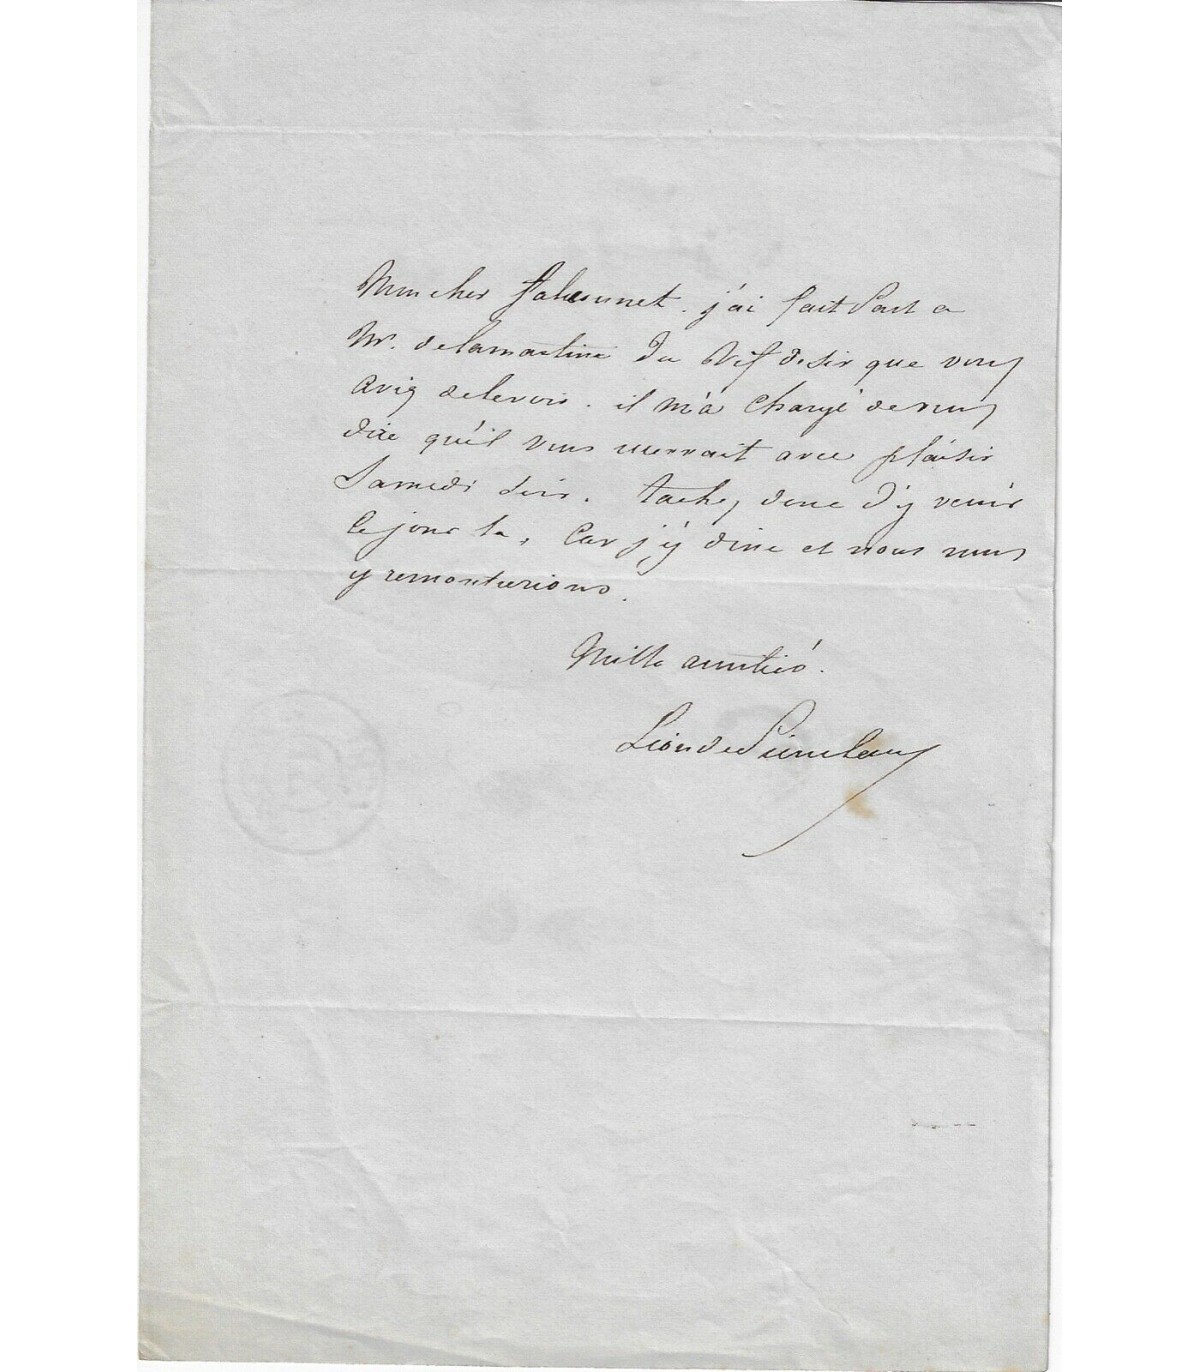 Mon cher Falconnet. j'ai fait part a
Mr. de lamartine du vif desir que vous
aviez de le voir. il m'a chargé de vous
dire qu'il vous verrait avec plaisir
Samedi soir. tachez donc d'y venir
ce jour la, car j'y dine et nous nous
y rencontrerions.
Mille amitiés.
Léon de